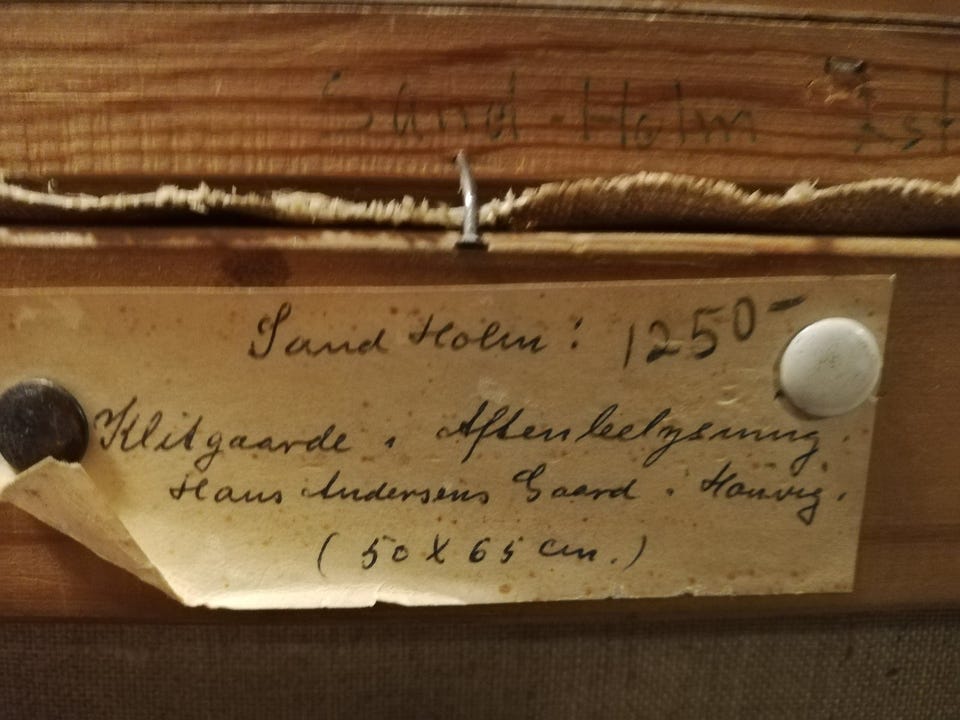 Sand-Holm
Sand Holm: 1250-
Klitgaarde i Aftenbelysning.
Hans Andersens Gaard. Houvig.
(50 X 65 cm.)